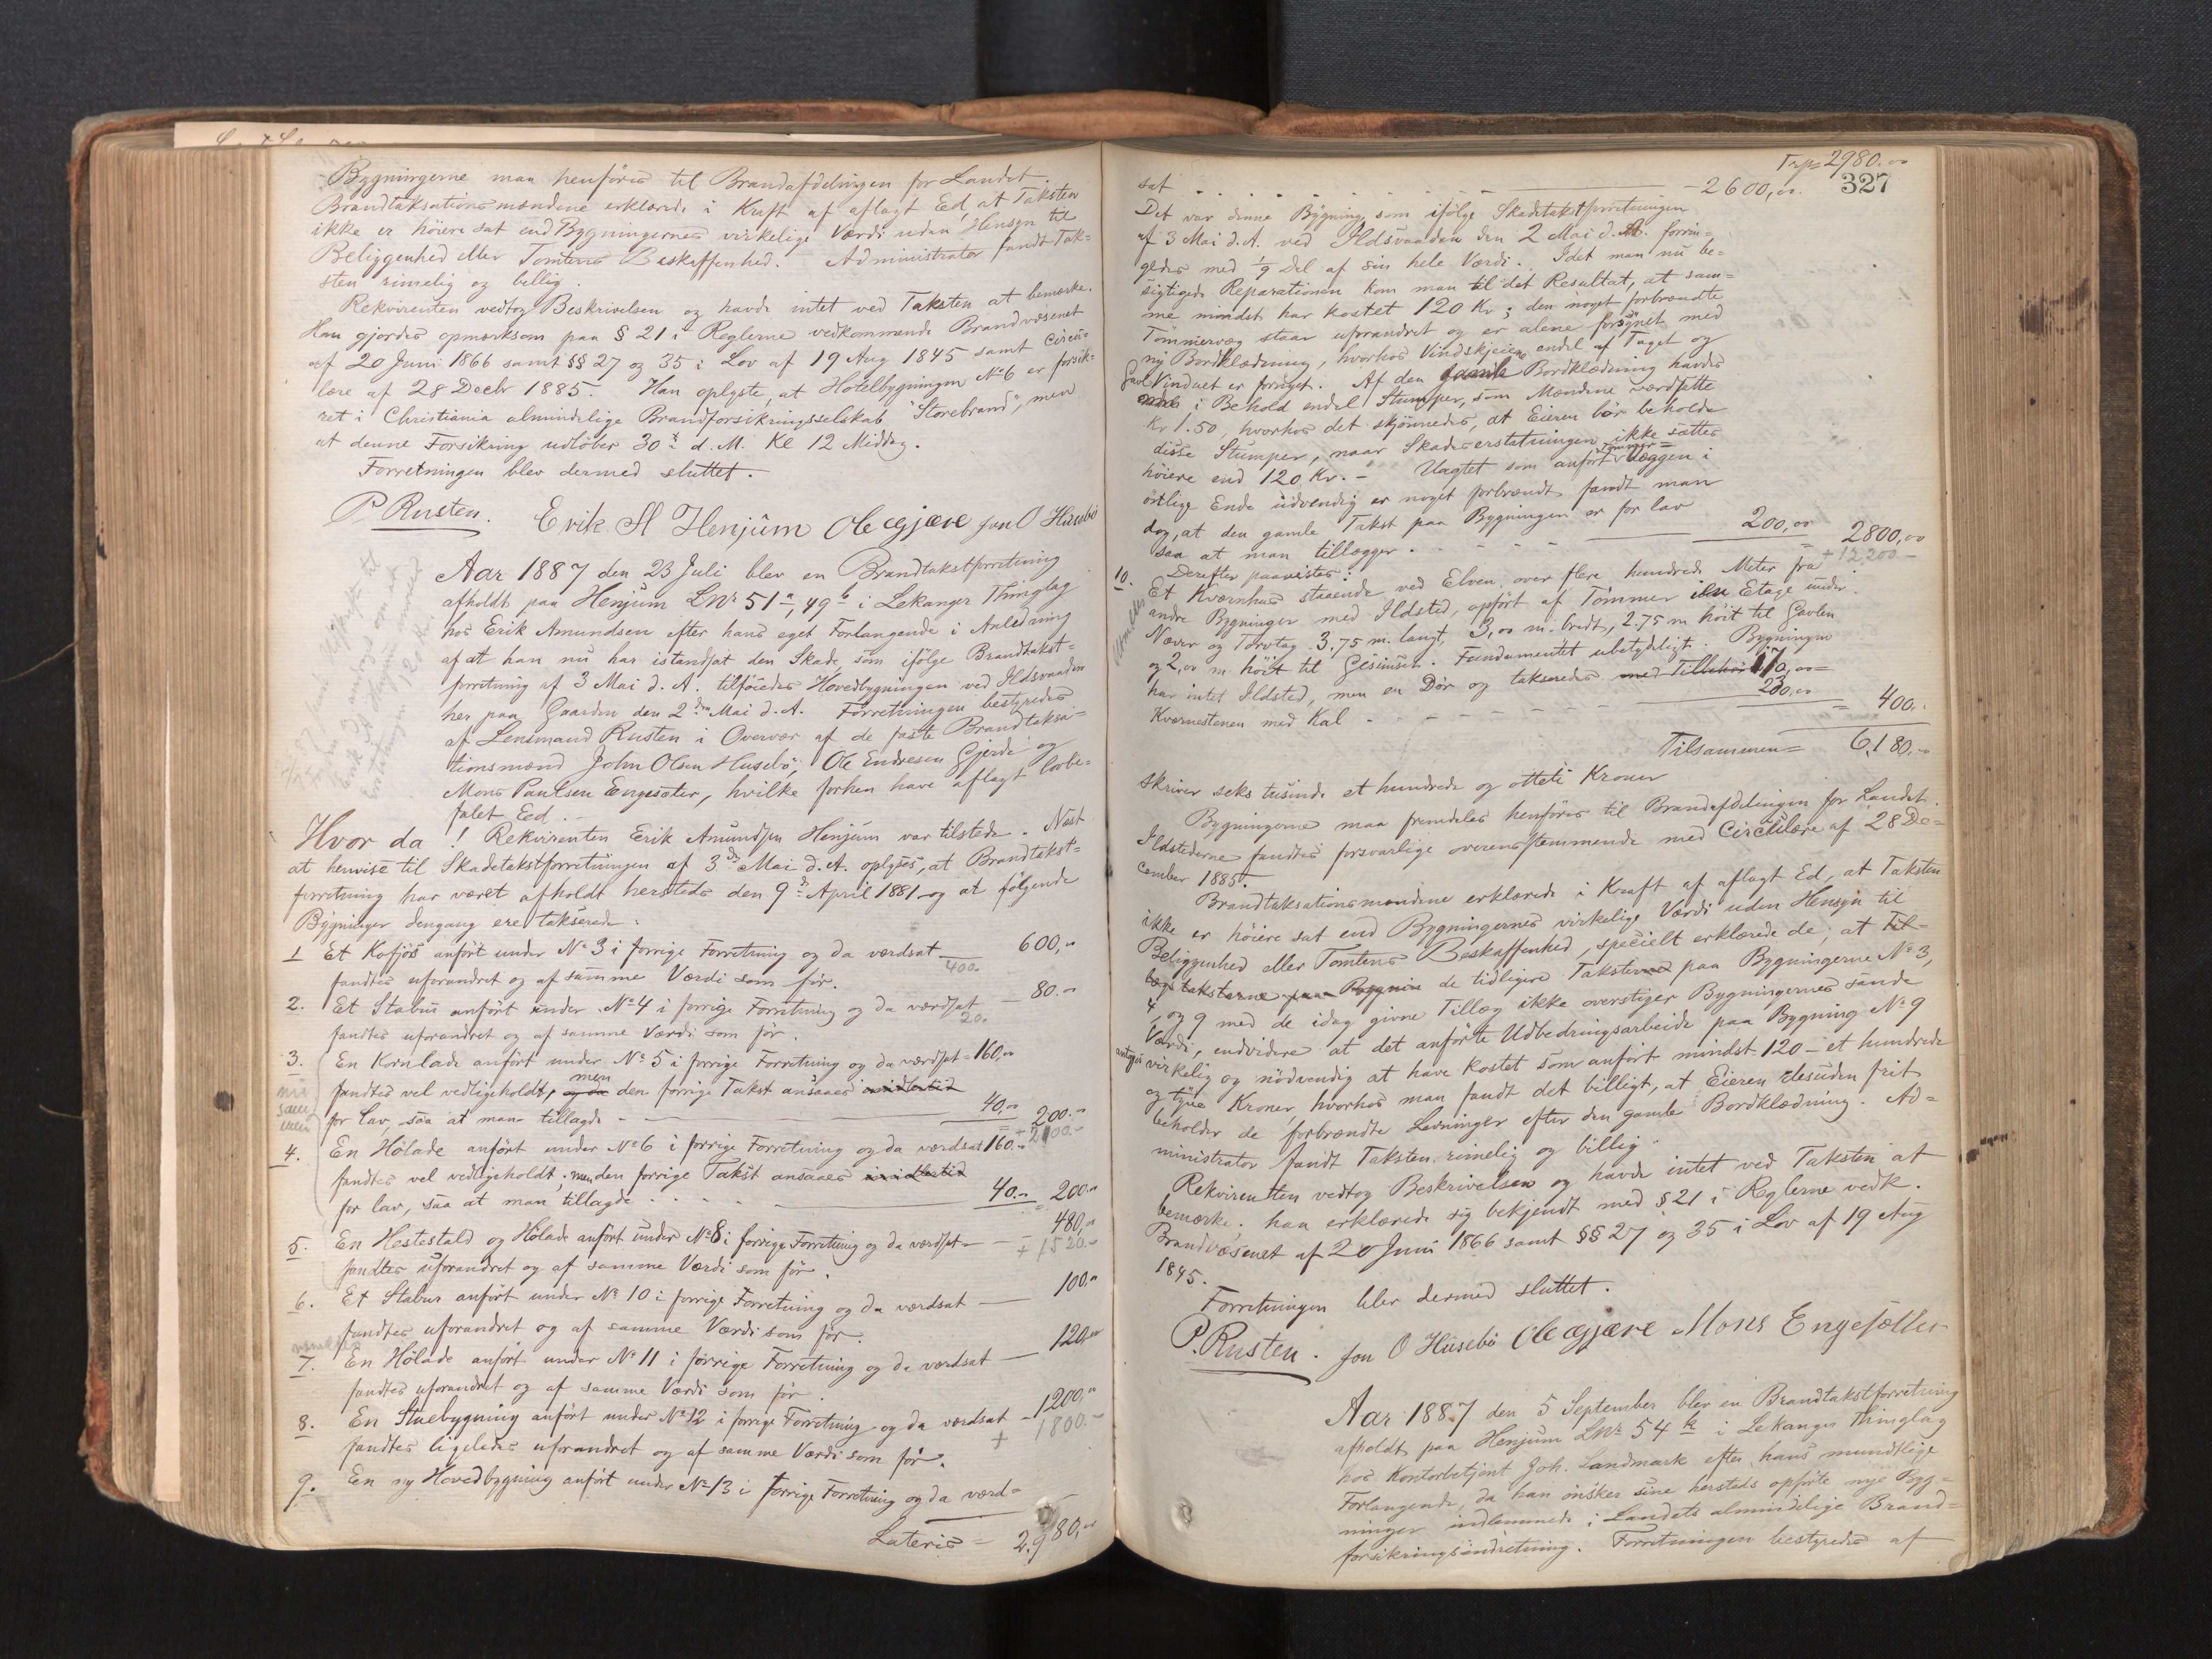 Bygningerne maa henføres til Brandafdelingen for Landet.
Brandtaksationsmændene erklærede i Kraft af aflagt Ed, at Taksten
ikke er høiere sat end Bygningernes virkelige Værdi uden Hensyn til
Beliggenhed eller Tomtens Beskaffenhed. Administrator fandt Tak=
sten rimelig og billig.
Rekvirenten vedtog Beskrivelsen og havde intet ved Taksten at bemærke.
Han gjordes opmærksom paa § 21 i Reglerne vedkommende Brandvæsenet
af 20 Juni 1866 samt §§ 27 og 35 i Lov af 19 Aug 1845 samt Circu=
lære af 28 Decbr 1885. Han oplyste, at Hotelbygningen No 6 er forsik=
ret i Christiania almindelige Brandforsikringsselskab "Storebrand", men
at denne Forsikring udløber 30te d. M. Kl 12 Middag.
Forretningen blev dermed sluttet.
P Rusten. Erik A Henjum Ole Gjære Jon O Husebö
Aar 1887 den 23 Juli blev en Brandtakstforretning
afholdt paa Henjum LNr 51a, 49b i Lekanger Thinglag
hos Erik Amundsen efter hans eget Forlangende i Anledning
af at han nu har istandsat den Skade, som ifølge Brandtakst=
forretning af 3 Mai d. A. tilføiedes Hovedbygningen ved Ildsvaaden
her paa Gaarden den 2den Mai d. A. Forretningen bestyredes
af Lensmand Rusten i Overvær af de faste Brandtaksa=
tionsmænd John Olsen Husebö, Ole Endresen Gjerde og
Mons Paulsen Engesæter, hvilke forhen have aflagt lovbe=
falet Ed.
Hvor da! Rekvirenten Erik Amundsen Henjum var tilstede. Næst
at henvise til Skadetakstforretningen af 3de Mai d. A. oplyses, at Brandtakst=
forretning har været afholdt hersteds den 9de April 1881 og at følgende
Bygninger dengang ere takserede:
1 Et Kofjøs anført under No 3 i forrige Forretning og da værdsat 600,00
fandtes uforandret og af samme Værdi som før. 400.
2. Et Stabur anført under No 4 i forrige Forretning og da værdsat 80.00
fandtes uforandret og af samme Værdi som før. 20.
3. En Kornlade anført under No 5 i forrige Forretning og da værdsat = 160,00
fandtes vel vedligeholdt, og da men den forrige Takst ansaaes imidlertid
for lav, saa at man tillagde 40,00 = 200.00
4. En Hølade anført under No 6 i forrige Forretning og da værdsat 160.00 + 2100.-
fandtes vel vedligeholdt; men den forrige Takst ansaaes imidlertid
for lav, saa at man tillagde 40.00 = 200.00
5. En Hestestald og Hølade anført under No 8 i forrige Forretning og da værdsat 480,00
fandtes uforandret og af samme Værdi som før. + 1520.-
6. Et Stabur anført under No 10 i forrige Forretning og da værdsat 100.00
fandtes uforandret og af samme Værdi som før.
7. En Hølade anført under No 11 i forrige Forretning og da værdsat 120.00
fandtes uforandret og af samme Værdi som før.
8. En Stuebygning anført under No 12 i forrige Forretning og da værdsat 1200,00
fandtes ligeledes uforandret og af samme Værdi som før. + 1800.-
9. En ny Hovedbygning anført under No 13 i forrige Forretning og da værd=
Lateris = 2.980,00
Trp= 2980.00
327
sat 2600,00.
Det var denne Bygning, som ifølge Skadetakstforretningen
af 3 Mai d. A. ved Ildsvaaden den 2 Mai d. A. forrin=
gedes med 1/9 Del af sin hele Værdi. Idet man nu be=
sigtigede Reparationen kom man til det Resultat, at sam=
me mindst har kostet 120 Kr; den noget forbrændte
Tømmervæg staar uforandret og er alene forsynet med
ny Bordklædning, hvorhos Vindskjeierne, endel af Taget og
Gavlvinduet er fornyet. Af den gamle Bordklædning havdes
i Behold endel Stumper, som Mændene værdsatte
Kr 1.50, hvorhos det skjønnedes, at Eieren bør beholde
disse Stumper, naar Skadeserstatningen ikke sættes
høiere end 120 Kr. - Uagtet som anført Tømmer=væggen i
østlige Ende udvendig er noget forbrændt fandt man
dog, at den gamle Takst paa Bygningen er for lav
saa at man tillægger 200,00 = 2800,00
+ 12.200 -
Derefter paavistes:
10. Et Kværnhus staaende ved Elven over flere hundrede Meter fra
andre Bygninger med Ildsted, opført af Tømmer een Etage under
Næver og Torvtag. 3,75 m. langt, 3,00 m. bredt, 2,75 m høit til Gavlen
og 2,00 m. høit til Gesimsen. Fundamentet ubetydeligt. Bygningen
har intet Ildsted, men en Dør og takseredes med Tilbehør 170,00 =
Kværnestenen med Kal 230,00 = 400.
Tilsammen = 6,180.00
skriver seks tusinde et hundrede og otteti Kroner
Bygningerne maa fremdeles henføres til Brandafdelingen for Landet.
Ildstederne fandtes forsvarlige overensstemmende med Circulære af 28 De=
cember 1885.
Brandtaksationsmændene erklærede i Kraft af aflagt Ed, at Taksten
ikke er høiere sat end Bygningernes virkelige Værdi uden Hensyn til
Beliggenhed eller Tomtens Beskaffenhed, specielt erklærede de, at Til=
lægs taksterne paa Bygnin de tidligere Taksterne paa Bygningerne No 3,
4, og 9 med de idag givne Tillæg ikke overstiger Bygningernes sande
Værdi, endvidere at det anførte Udbedringsarbeide paa Bygning No 9
antages virkelig og nødvendig at have kostet som anført mindst 120 - et hundrede
og tyve Kroner, hvorhos man fandt det billigt, at Eieren desuden frit
beholder de forbrændte Levninger efter den gamle Bordklædning. Ad=
ministrator fandt Taksten rimelig og billig.
Rekvirenten vedtog Beskrivelsen og havde intet ved Taksten at
bemærke; han erklærede sig bekjendt med § 21 i Reglerne vedk.
Brandvæsenet af 20 Juni 1866 samt §§ 27 og 35 i Lov af 19 Aug
1845.
Forretningen blev dermed sluttet.
P. Rusten. Jon O Husebö Ole Gjære Mons Engesætter
Aar 1887 den 5 September blev en Brandtakstforretning
afholdt paa Henjum LNr 54 i Lekanger Thinglag
hos Kontorbetjent Joh. Landmark efter hans mundtlige
Forlangende, da han ønsker sine hersteds opførte nye Byg=
ninger indlemmede i Landets almindelige Brand=
forsikringsindretning. Forretningen bestyredes af